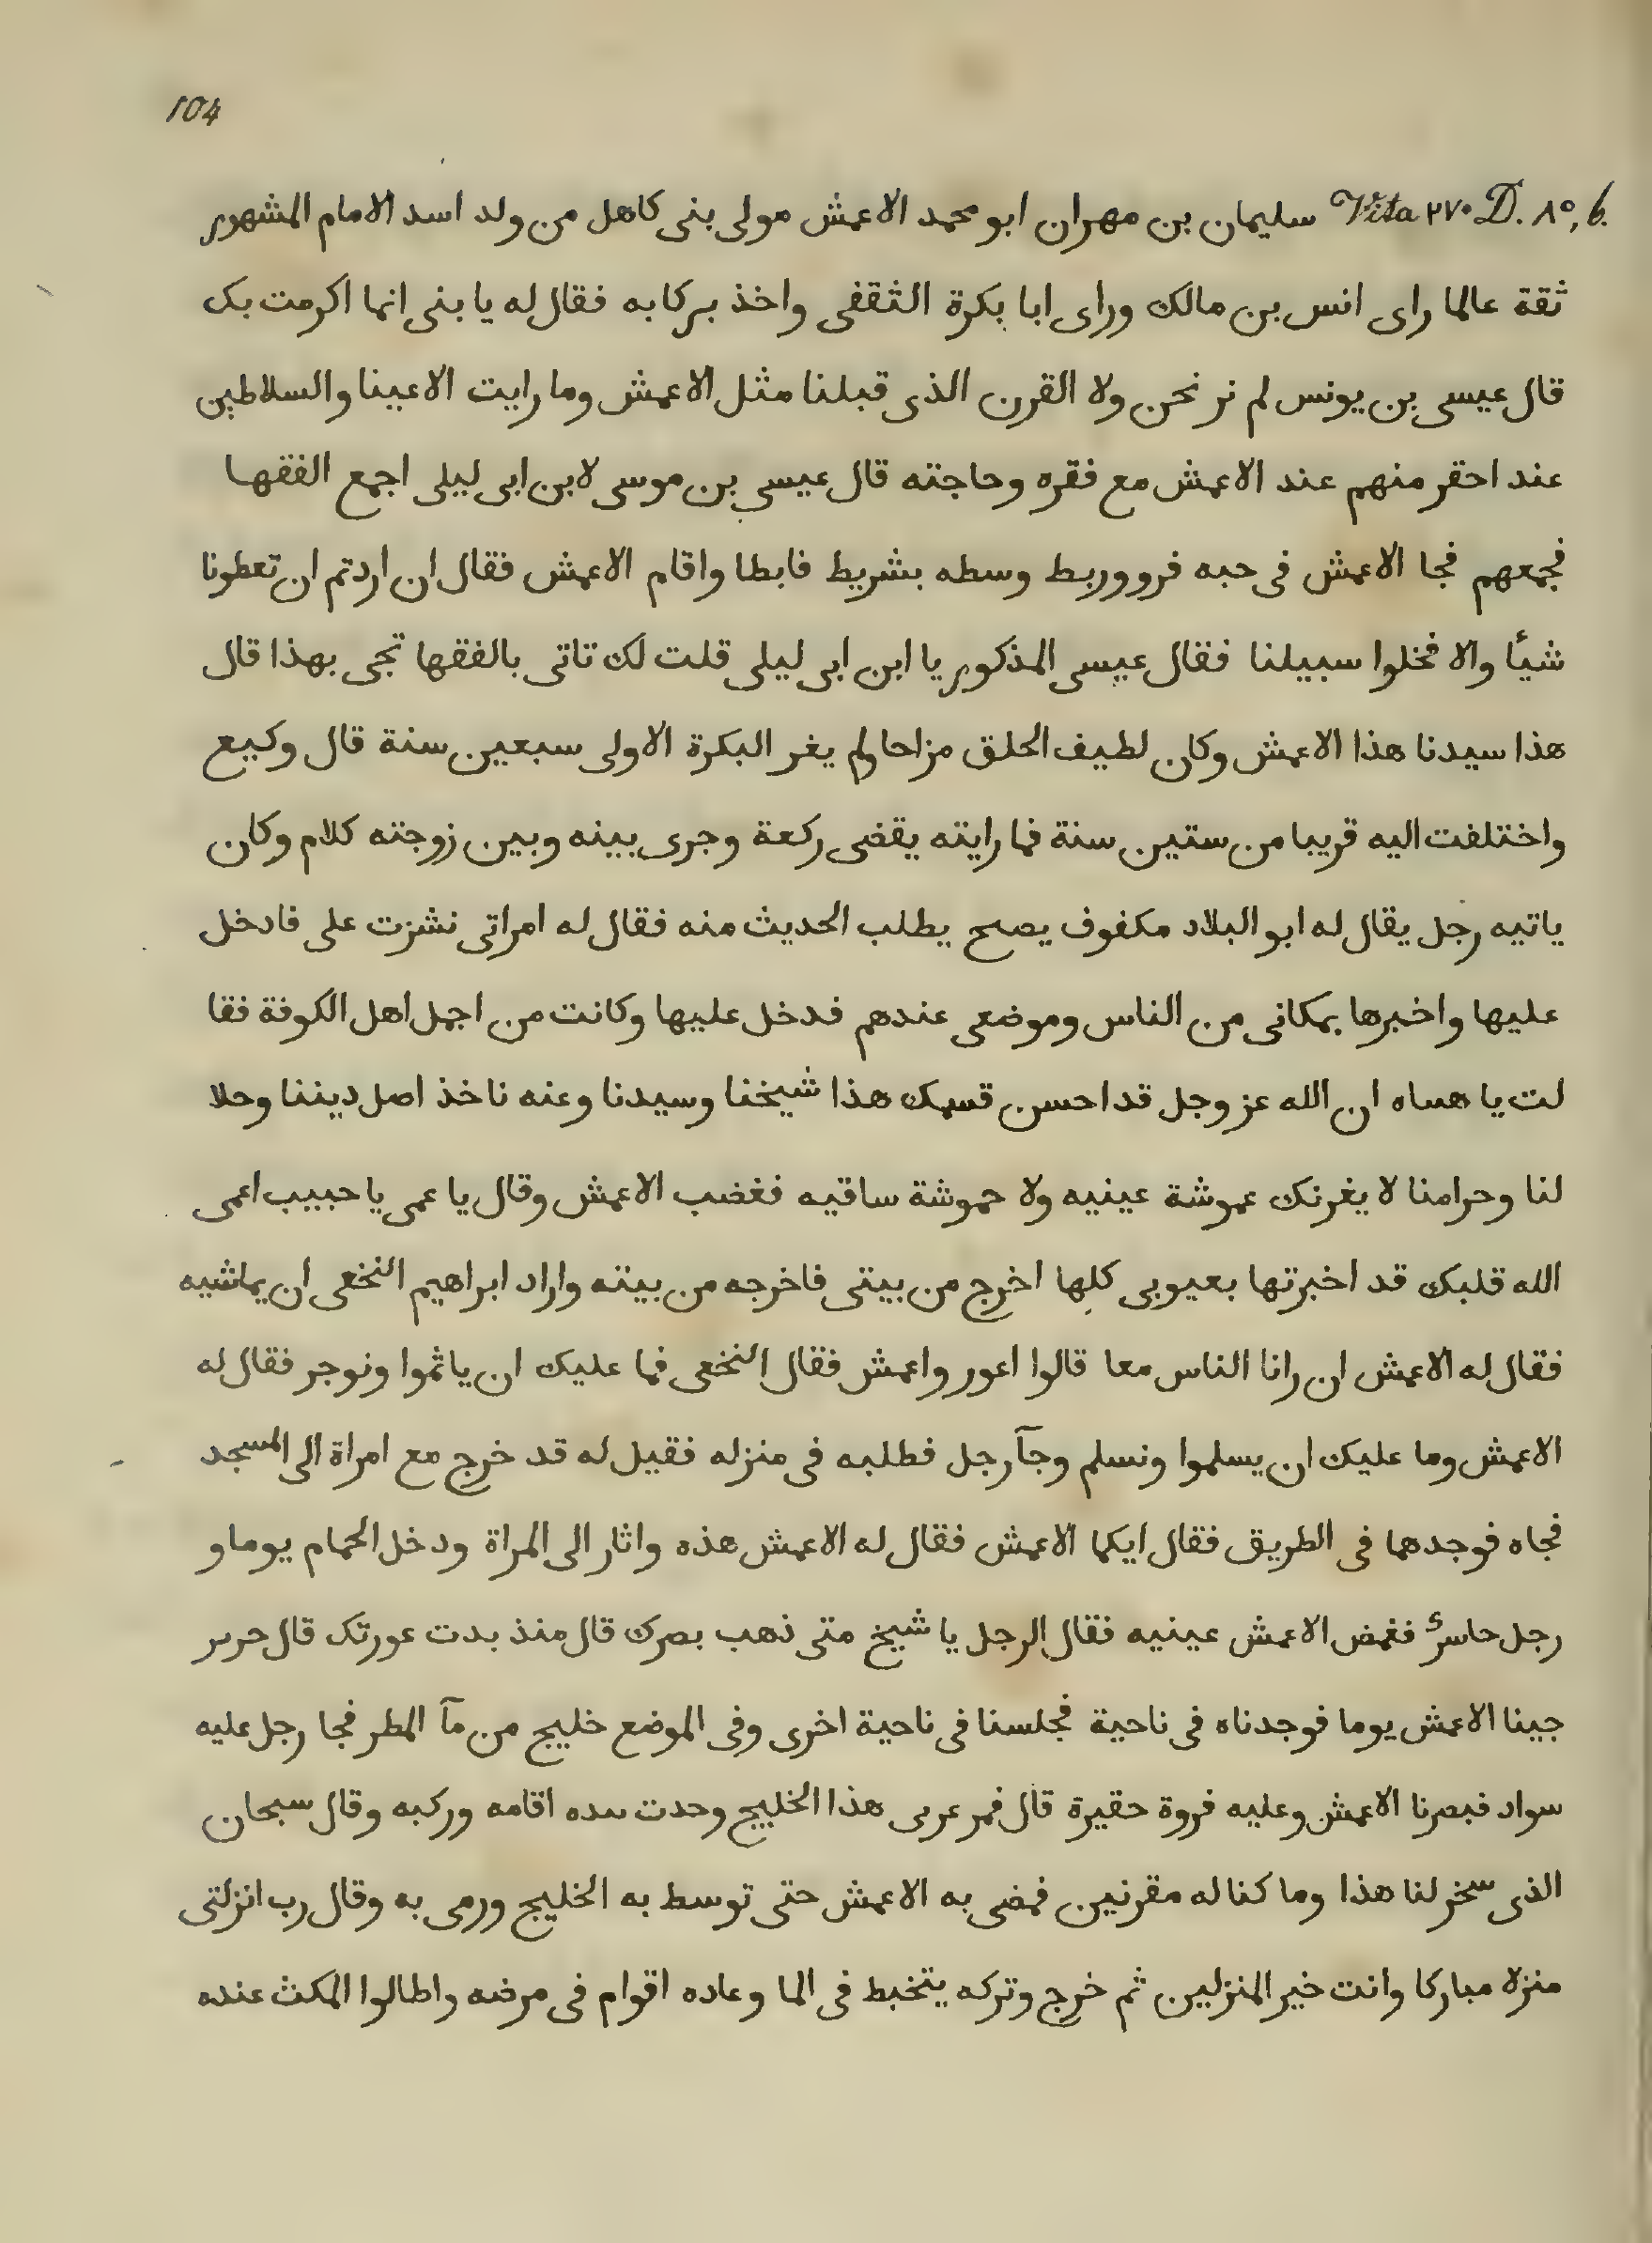 104
Vita ٢٧٠ D. ٨٥, b. سليمان بن مهران ابو محمد الاعمش مولى بنى كاهل من ولد اسد الامام المشهور
ثقة عالما راى انس بن مالك وراى ابا بكرة الثقفى واخذ بركابه فقال له يا بنى انما اكرمت بك
قال عيسى بن يونس لم نر نحن ولا القرن الذى قبلنا مثل الاعمش وما رايت الاعينا والسلاطين
عند احقر منهم عند الاعمش مع فقره وحاجته قال عيسى بن موسى لابن ابى ليلى اجمع الفقها
فجمعهم فجا الاعمش فى حبه فرو وربط وسطه بشريط فابطا واقام الاعمش فقال ان اردتم ان تعطونا
شيأ والا فخلوا سبيلنا فقال عيسى المذكور يا ابن ابى ليلى قلت لك تاتى بالفقها تجى بهذا قال
هذا سيدنا هذا الاعمش وكان لطيف الحلق مزاحا ولم يغر البكرة الاولى سبعين سنة قال وكيع
واختلفت اليه قريبا من ستين سنة فما رايته يقضى ركعة وجرى بينه وبين زوجته كلام وكان
ياتيه رجل يقال له ابو البلاد مكفوف يصح يطلب الحديث منه فقال له امراتى نشزت على فادخل
عليها واخبرها بمكانى من الناس وموضعى عندهم فدخل عليها وكانت من اجمل اهل الكوفة فقا
لت يا هساه ان الله عز وجل قد احسن قسمك هذا شيخنا وسيدنا وعنه ناخذ اصل ديننا وحلا
لنا وحرامنا لا يغرنك عموشة عينيه ولا حموشة ساقيه فغضب الاعمش وقال يا عمى يا حبيب اعمى
الله قلبك قد اخبرتها بعيوبى كلها اخرج من بيتى فاخرجه من بيته واراد ابراهيم النخعى ان يماشيه
فقال له الاعمش ان رانا الناس معا قالوا اعور واعمش فقال النخعى فما عليك ان ياثموا ونوجر فقال له
الاعمش وما عليك ان يسلموا ونسلم وجآ رجل فطلبه فى منزله فقيل له قد خرج مع امراة الى المسجد
فجاه فوجدهما فى الطريق فقال ايكما الاعمش فقال له الاعمش هذه واثار الى المراة ودخل الحمام يوما و
رجل حاسر فغمض الاعمش عينيه فقال الرجل يا شيخ متى ذهب بصرك قال منذ بدت عورتك قال حرىر
جينا الاعمش يوما فوجدناه فى ناحية فجلسنا فى ناحية اخرى وفى الموضع خليج من مآ المطر فجا رجل عليه
سواد فبصرنا الاعمش وعليه فروة حقيرة قال فمر عربى هذا الخليج وحدت ىىده اقامه وركبه وقال سبحان
الذى سخر لنا هذا وما كنا له مقرنين فمضى به الاعمش حتى توسط به الخليج ورمى به وقال رب انزلتى
منزلا مباركا وانت خير المنزلين ثم خرج وتركه يتخبط فى الما وعاده اقوام فى مرضه واطالوا المكث عنده